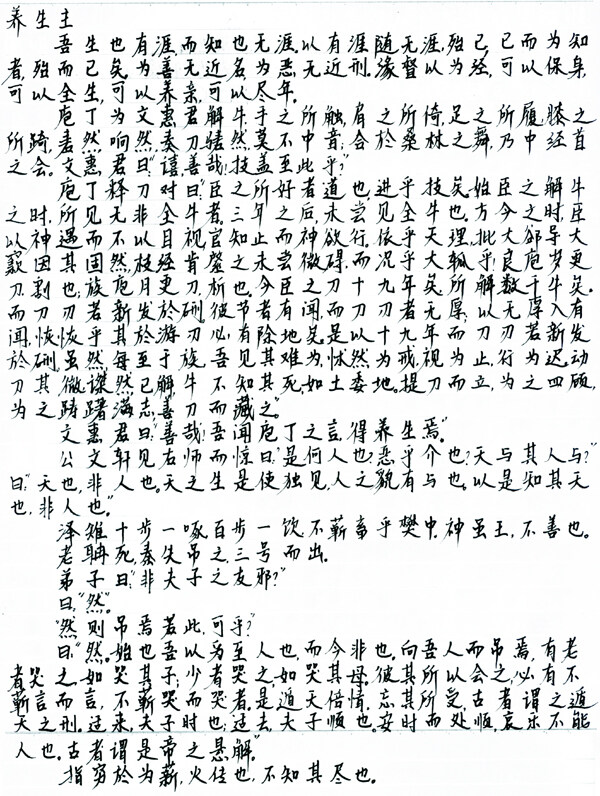 养生主
吾生也有涯,而知也无涯。以有涯随无涯,殆已,已而为知
者,殆而已矣。为善无近名,为恶无近刑。缘督以为经,可以保身,
可以全生,可以养亲,可以尽年。
庖丁为文惠君解牛,手之所触,肩之所倚,足之所履,膝之
所踦,砉然响然,奏刀騞然,莫不中音;合於桑林之舞,乃中经首
之会。文惠君曰:"譆,善哉!技盖至此乎?"
庖丁释刀对曰:"臣之所好者道也,进乎技矣。始臣之解牛
之时,所见无非全牛者;三年之后,未尝见全牛也。方今之时,臣
以神遇而不以目视,官知止而神欲行。依乎天理,批大郤,导大
窾,因其固然,技经肯綮之未尝微碍,而况大軱乎!良庖岁更
刀,割也;族庖月更刀,折也。今臣之刀十九年矣,所解数千牛矣。
而刀刃若新发於硎。彼节者有闻,而刀刃者无厚;以无厚入有
闻,恢恢乎其於游刃必有余地矣,是以十九年而刀刃若新发
於硎。虽然,每至于族,吾见其难为,怵然为戒,视为止,行为迟,动
刀其微,謋然已解,牛不知其死,如土委地。提刀而立,为之四顾,
为之踌躇满志,善刀而藏之。"
文惠君曰:"善哉!吾闻庖丁之言,得养生焉。"
公文轩见右师而惊曰:"是何人也?恶乎介也?天与其人与?"
曰:"天也,非人也。天之生是使独见,人之貌有与也。以是知其天
也,非人也。"
泽雉十步一啄,百步一饮,不蕲畜乎樊中。神虽王,不善也。
老聃死,秦失吊之,三号而出。
弟子曰:"非夫子之友邪?"
曰:"然。"
"然则吊焉若此,可乎?"
曰:"然。始也吾以为至人也,而今非也。向吾人而吊焉,有老
者哭之,如哭其子;少者哭之,如哭其母。彼其所以会之,必有不
蕲言而言,不蕲哭而哭者。是遁天倍情,忘其所受,古者谓之遁
天之刑。过来,夫子时也;过去,夫子顺也。安时而处顺,哀乐不能
人也。古者谓是帝之悬解。"
指穷於为薪,火佳也,不知其尽也。